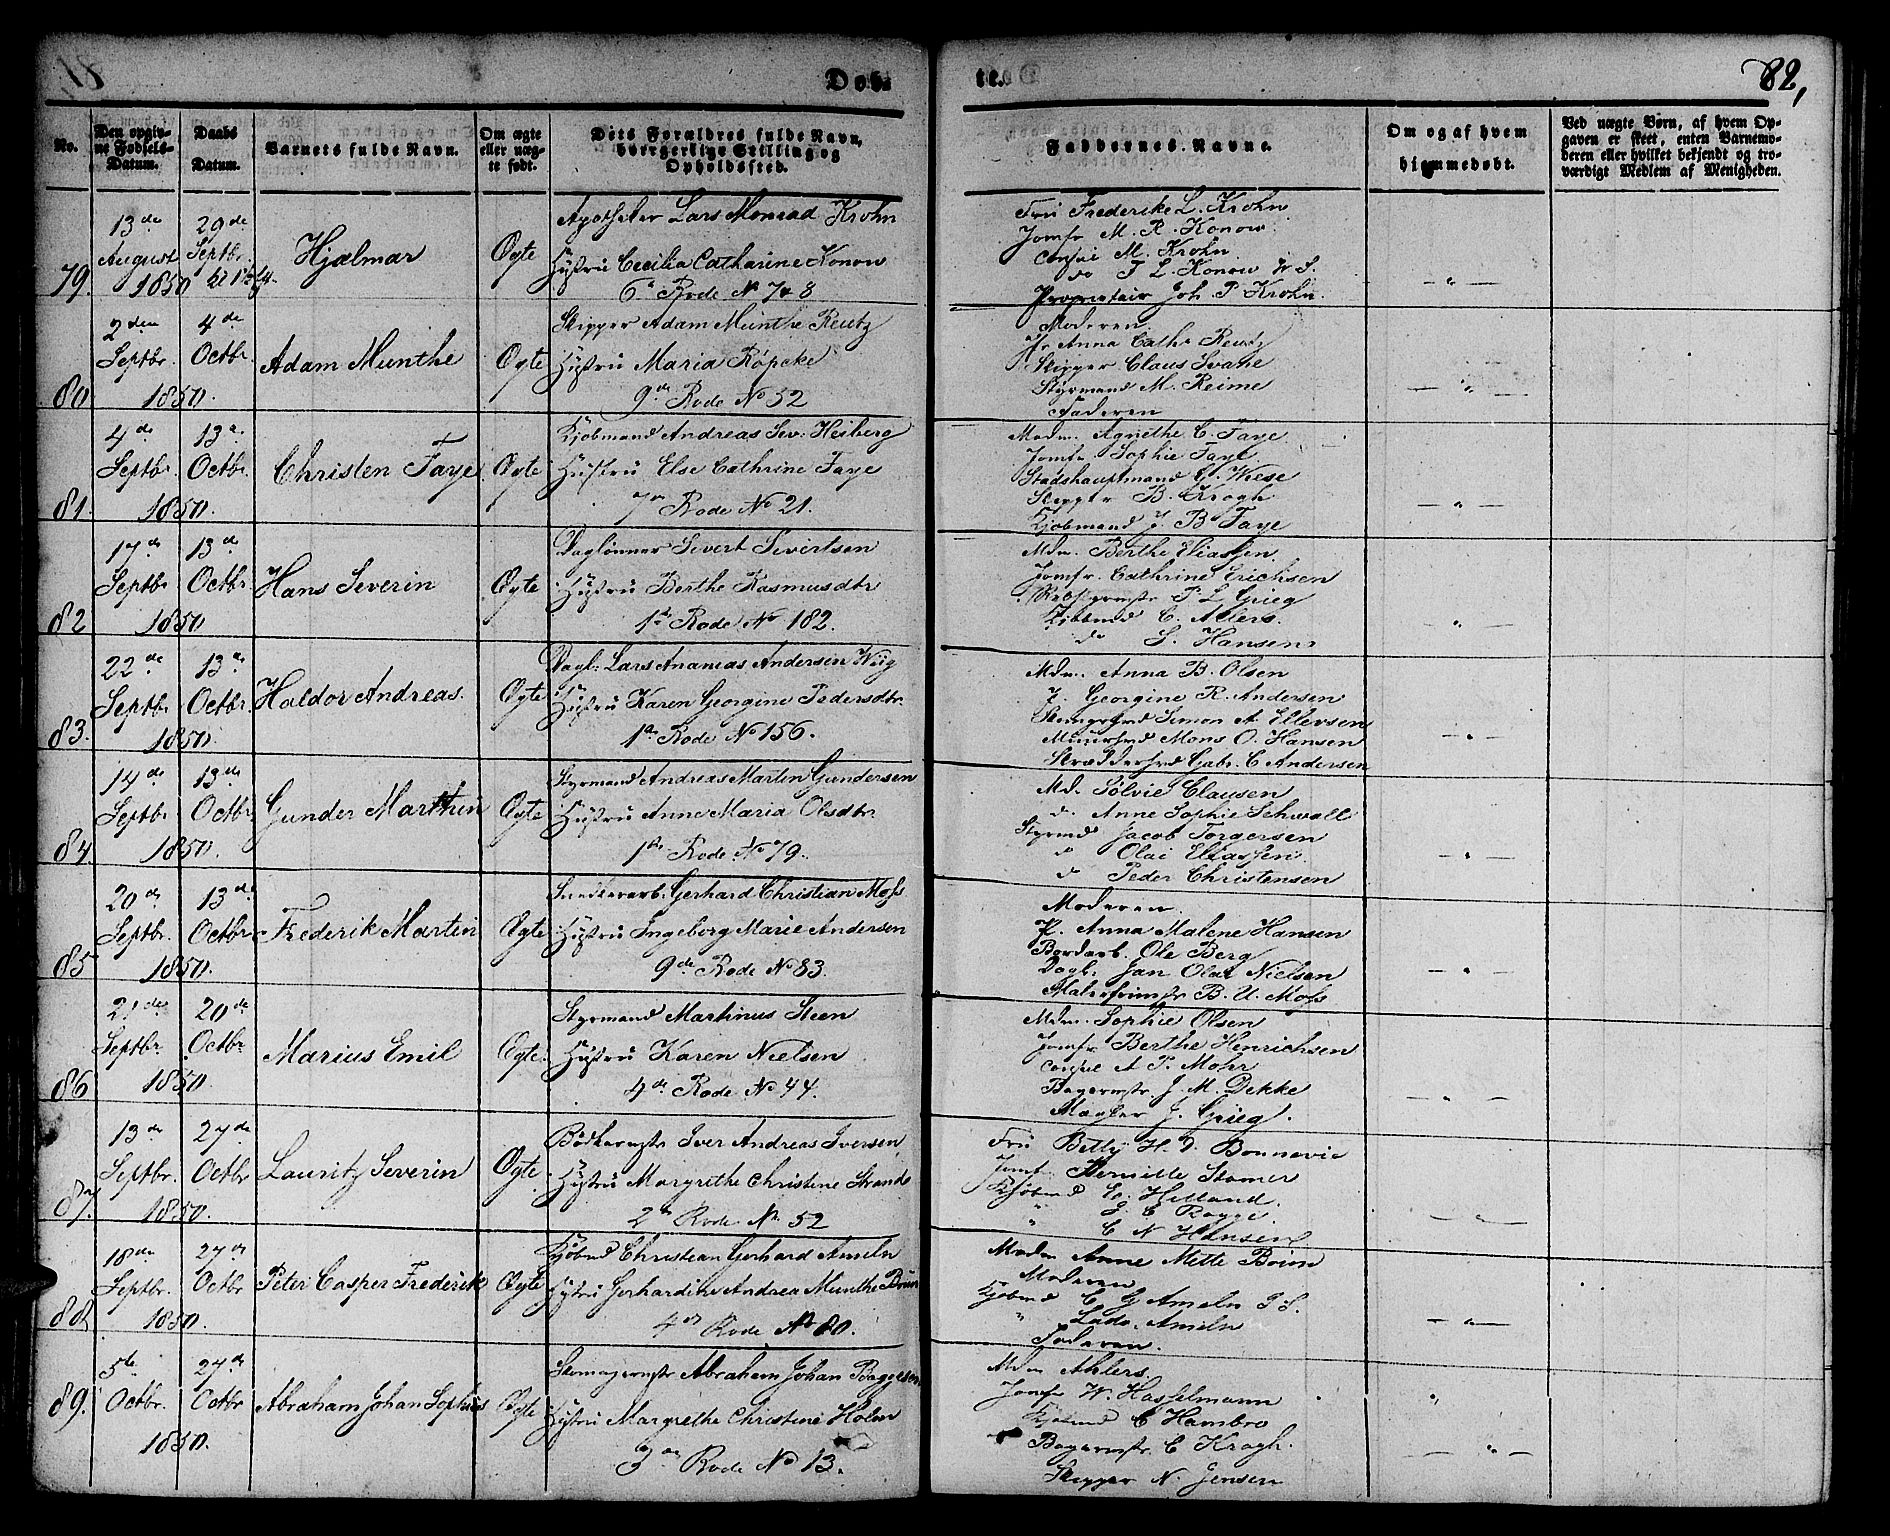 Døb-
te.
82,
No.
Den opgiv-
ne Fødsels-
Datum.
Daabs
Datum.
Barnets fulde Navn.
Om ægte
eller uæg-
te født.
Dets Forældres fulde Navn,
borgerlige Stilling og
Opholdssted.
Faddernes Navne.
Om og af hvem
hjemmedøbt.
Ved uægte Børn, af hvem Op-
gaven er skeet, enten Barnemo-
deren eller hvilket bekjendt og tro-
værdigt Medlem af Menigheden.
79.
13de
August
1850
29de
Septbr.
Hjalmar
Ægte
Apotheker Lars Monrad Krohn
Hustru Cecilia Catharine Konow
6te Rode No 7 & 8
Fru Frederike L. Krohn
Jomfr M. R. Konow
Consul M. Krohn
do F L. Konow W. S.
Proprietair Joh. P. Krohn.
— " —
80
2den
Septbr.
1850.
4de
Octbr.
Adam Munthe
Ægte
Skipper Adam Munthe Reutz
Hustru Maria Röpcke
9de Rode No 52
Moderen
Jfr Anna Cathr Reutz
Skipper Claus Svahe
Styrmand M. Reime
Faderen
— " —
81.
4de
Septbr
1850.
13de
Octbr.
Christen Faye
Ægte
Kjøbmand Andreas Sev: Heiberg
Hustru Else Cathrine Faye
7de Rode No 21.
Mdm. Agnethe C. Faye
Jomfr Sophie Faye
Stadshauptmand C. Wiese
Skipper B. Krogh
Kjøbmand J. B Faye
— " —
82
17de
Septbr
1850
13de
Octbr
Hans Severin
Ægte
Daglønner Sivert Sivertsen
Hustru Berthe Rasmusdtr
1ste Rode No 182.
Mdm. Berthe Eliassen
Jomfr. Cathrine Erichsen
P L Grieg
Kjøbmd C. Ahlers.
do S. Hansen
"
83.
22de
Septbr
1850.
13de
Octbr.
Haldor Andreas.
Ægte
Dagl: Lars Ananias Andersen Wiig
Hustru Karen Georgine Pedersdtr.
1ste Rode No 156.
Mdm. Anna B. Olsen
J. Georgine R. Andersen
Simon A Ellevsen
Muursvd Mons O. Hansen
Skrædersvd Gabr. C Andersen
— " —
84
14de
Septbr
1850.
13de
Octbr.
Gunder Marthin
Ægte
Styrmand Andreas Martin Gundersen
Hustru Anne Maria Olsdtr
1ste Rode No 79.
Md. Sølvie Clausen
do Anne Sophie Schwall
Styrmd Jacob Torgersen
do Olai Eliassen
do Peder Christensen
— " —
85
20de
Septbr.
1850.
13de
Octbr
Frederik Martin
Ægte
Gerhard Christian Moss
Hustru Ingeborg Marie Andersen
9de Rode No 83.
Moderen.
P. Anna Malene Hansen
Bordarb. Ole Berg
Dagl. Jan Olai Nielsen
B. U. Moss
— " —
86
21de
Septbr.
1850.
20de
Octbr
Marius Emil
Ægte.
Styrmand Martinus Steen
Hustru Karen Nielsen
4de Rode No 44.
Mdm. Sophie Olsen
Jomfr Berthe Henrichsen
Consul A P. Mohr
Bagermstr. J. M. Dekke
Mægler J. Grieg.
— " —
87.
13de
Septbr.
1850.
27de
Octbr
Lauritz Severin
Ægte
Bødkermstr Iver Andreas Iversen
Hustru Margrethe Christine Strande
2den Rode No. 52
Fru Betty H. D. Bonnevie
Jomfr Pernille Stamer
Kjøbmd E. Helland
"
C N Hansen
— " —
88
18de
Septbr.
1850.
27de
Octbr
Peter Casper Frederik
Ægte
Kjøbmd Christian Gerhard Ameln
Hustru Gerhardine Andrea Munthe Bruun
4de Rode No 80.
Madm Anne Mette Bruun
Moderen
Kjøbmd C. G Ameln P. S.
" Ludv. Ameln
Faderen.
— " —
89.
5te
Octbr.
1850.
27de
Octbr
Abraham Johan Sophus
Ægte
Skomagermstr Abraham Johan Baggesen
Hustru Margrethe Christine Holm
3de Rode No 13.
Mdm Ahlers.
Jomfr W. Hasselmann
Kjøbmd C Hambro
Bagermstr. C Krogh.
Skipper N. Jensen
— " —